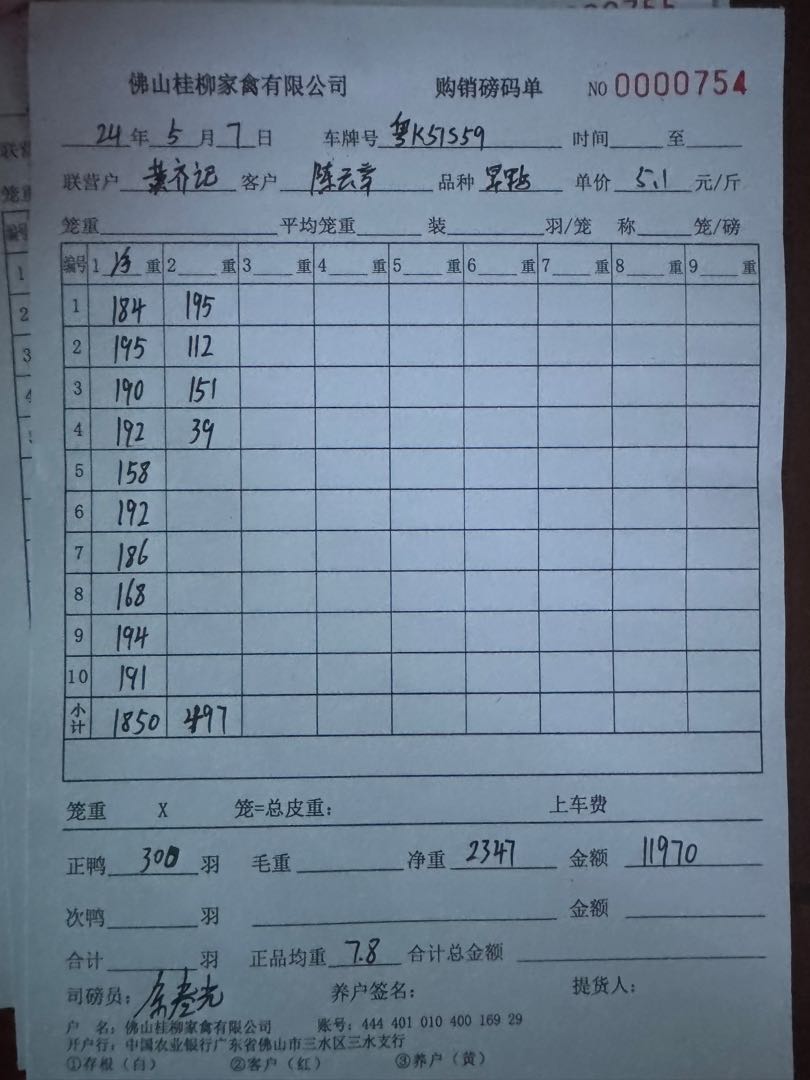 佛山桂柳家禽有限公司 购销磅码单 NO 0000754
24年 5月 7日 车牌号 粤K51S59 时间 至
联营户 黄齐记 客户 陈云章 品种 旱鸭 单价 5.1 元/斤
笼重 平均笼重 装 羽/笼 称 笼/磅
编号 1 净 重 2 重 3 重 4 重 5 重 6 重 7 重 8 重 9 重
1 184 195
2 195 112
3 190 151
4 192 39
5 158
6 192
7 186
8 168
9 194
10 191
小计 1850 497
笼重 X 笼=总皮重： 上车费
正鸭 300 羽 毛重 净重 2347 金额 11970
次鸭 羽 金额
合计 羽 正品均重 7.8 合计总金额
司磅员： 养户签名： 提货人：
户 名：佛山桂柳家禽有限公司 账号：444 401 010 400 169 29
开户行：中国农业银行广东省佛山市三水区三水支行
①存根（白） ②客户（红） ③养户（黄）